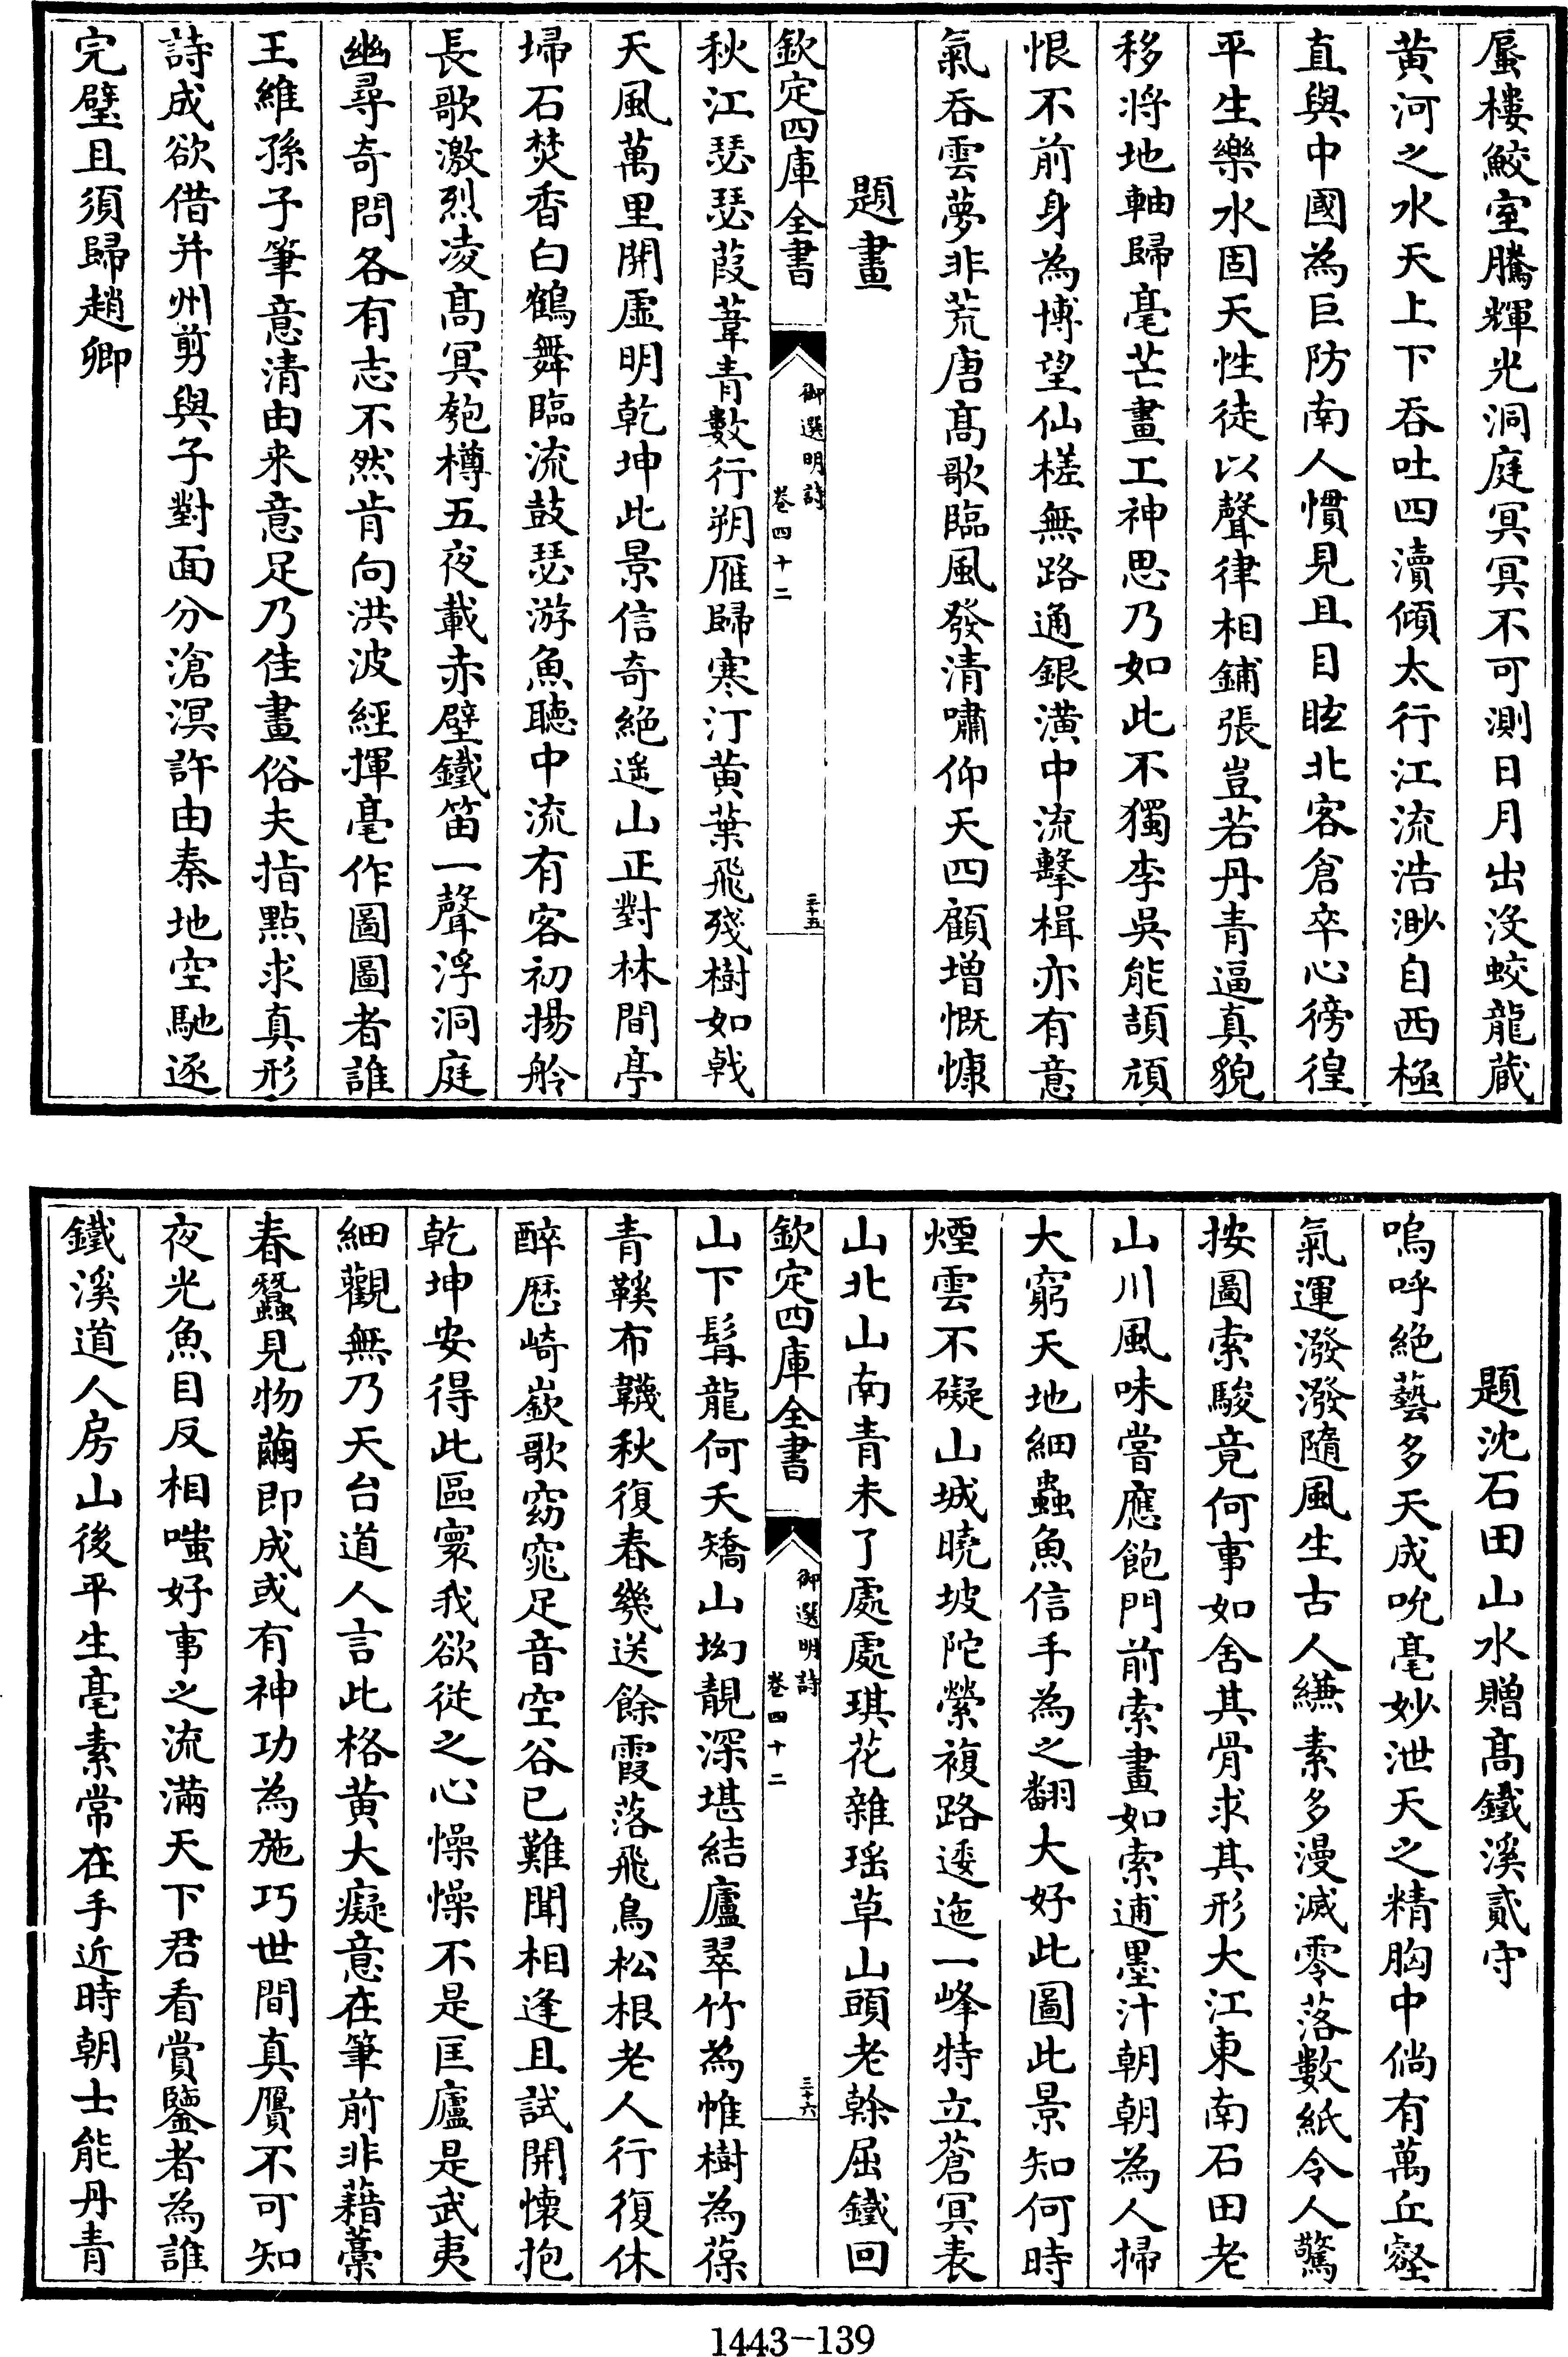 蜃樓鮫室騰輝光洞庭冥冥不可測日月出沒蛟龍蔵
黄河之水天上下吞吐四瀆傾太行江流浩渺自西極
直與中國為巨防南人慣見且目眩北客倉卒心徬徨
平生樂水固天性徒以聲律相鋪張豈若丹青逼真貌
移將地軸歸毫芒畫工神思乃如此不獨李吳能頡頏
恨不前身為博望仙槎無路通銀潢中流擊楫亦有意
氣吞雲夢非荒唐髙歌臨風發清嘯仰天四顧增慨慷
題畫
欽定四庫全書
御選明詩
卷四十二
三十五
秋江瑟瑟葭葦青數行朔雁歸寒汀黄葉飛殘樹如㦸
天風萬里開虚明乾坤此景信奇絶遥山正對林間亭
埽石焚香白鶴舞臨流鼓瑟游魚聽中流有客初揚舲
長歌激烈凌髙冥匏樽五夜載赤壁鐵笛一聲浮洞庭
幽尋奇問各有志不然肯向洪波經揮毫作圖圖者誰
王維孫子筆意清由来意足乃佳畫俗夫指點求真形
詩成欲借并州剪與子對面分滄溟許由秦地空馳逐
完璧且須歸趙卿
題沈石田山水贈髙鐵溪貳守
嗚呼絶藝多天成吮毫妙泄天之精胸中倘有萬丘壑
氣運潑潑隨風生古人縑素多漫滅零落數紙令人驚
按圖索駿竟何事如舍其骨求其形大江東南石田老
山川風味嘗應飽門前索畫如索逋墨汁朝朝為人掃
大窮天地細蟲魚信手為之翻大好此圖此景知何時
煙雲不礙山城曉坡陀縈複路逶迤一峰特立蒼冥表
山北山南青未了處處琪花雜瑶草山頭老榦屈鐵回
欽定四庫全書
御選明詩
卷四十二
三十六
山下髯龍何夭矯山坳靚深堪結廬翠竹為帷樹為葆
青鞵布韈秋復春幾送餘霞落飛鳥松根老人行復休
醉歴崎嶔歌窈窕足音空谷已難聞相逢且試開懷抱
乾坤安得此區寰我欲從之心懆懆不是匡廬是武夷
細觀無乃天台道人言此格黄大癡意在筆前非藉藁
春蠶見物繭即成或有神功為施巧世間真贋不可知
夜光魚目反相嗤好事之流滿天下君看賞鑒者為誰
鐵溪道人房山後平生毫素常在手近時朝士能丹青
1443-139